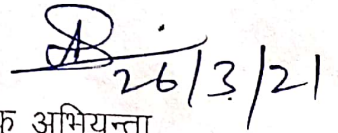 26/3/21
क अभियन्ता